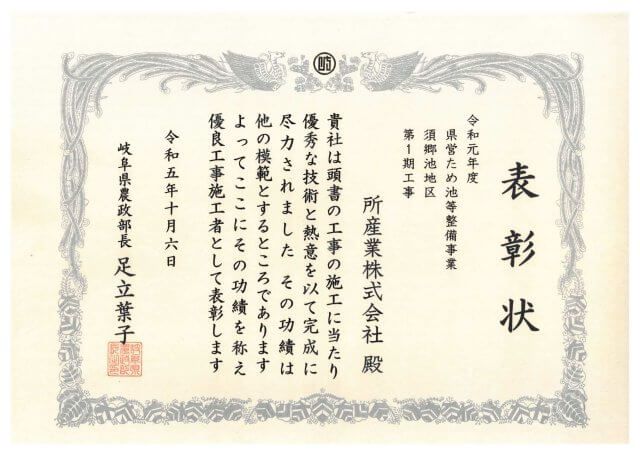 表彰状
令和元年度
県営ため池等整備事業
須郷池地区
第1期工事
所産業株式会社 殿
貴社は頭書の工事の施工に当たり
優秀な技術と熱意を以て完成に
尽力されました その功績は
他の模範とするところであります
よってここにその功績を称え
優良工事施工者として表彰します
令和五年十月六日
岐阜県農政部長 足立葉子